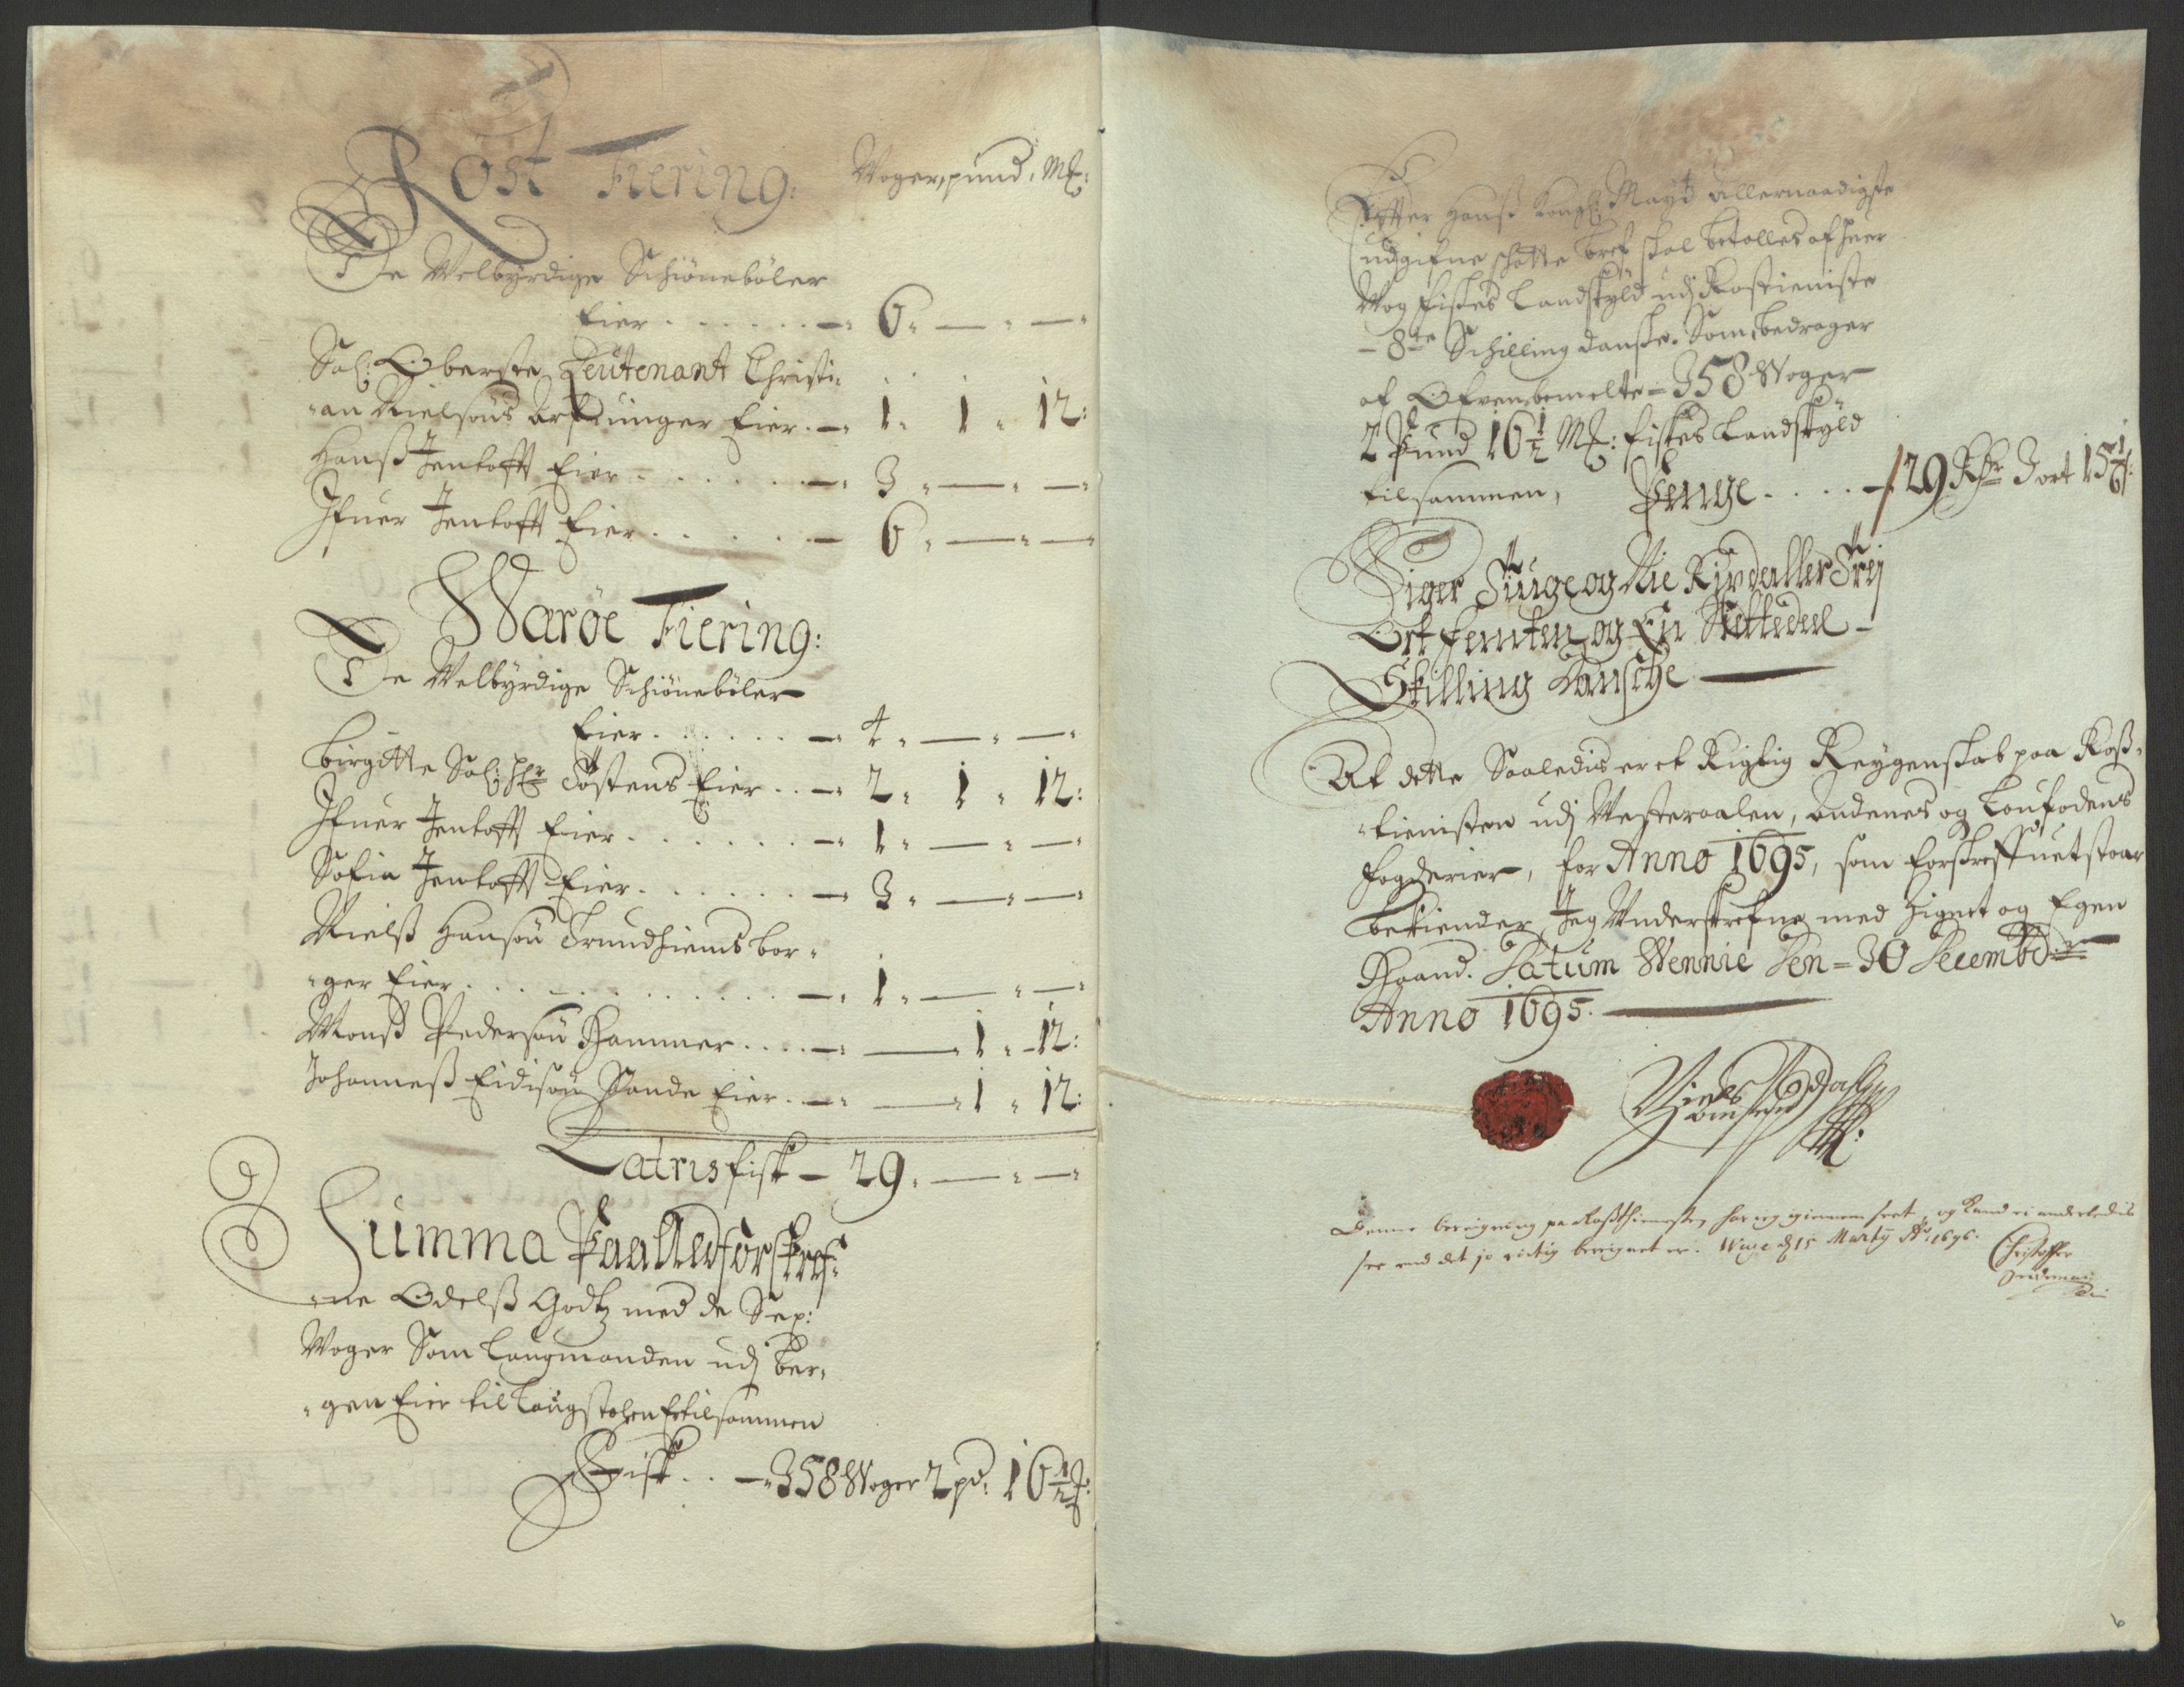 Röst Fiering: Woger, pund, Mk:
De Welbyrdige Schiönebøler
Eier . . . . . . — 6 " — " —
Sal: Oberste Leutenant Christi-
-an Nielsøns Arfvinger Eier . — 1 " 1 " 12:
Hanss Jentofft Eier . . . . . . — 3 " — " —
Ifuer Jentofft Eier . . . . . — 6 " — " —
Warøe Fiering:
De Welbyrdige Schiönebøler
Eier . . . . . . — 4 " — " —
Birgitte Sal: Hr Tostens Eier . . — 2 " 1 " 12:
Ifuer Jentofft Eier . . . . . . — 1 " — " —
Sofia Jentofft Eier . . . . . . — 3 " — " —
Nielss Hansøn Trundhiems bor-
-ger Eier . . . . . . . . . . — 1 " — " —
Monss Pedersøn Hammer . . . . — — 1 " 12:
Johanness Eidisøn Sande Eier . — — 1 " 12:
Latris fisk — 29 " — " —
Summa Paa Alt forskref-
-ne Odelss Godtz med de Sex:
Woger Som Laugmanden udj Ber-
-gen Eier til Laugstolen Er tilsammen
Fisk . . — 358 Woger 2 pd: 16 1/2 Mk:
Efter Hanss Kongl: Mayts allernaadigste
udgifne schatte bref skal betalles af huer
Wog fiskes Landskyld udj Rostieniste
— 8te Schilling danske. Som bedrager
af Ofvenbemelte = 358 Woger
2 Pund 16 1/2 Mk: fiskes Landskyld
tilsammen, Penge . . . . — 129 Rdr 3 ort 15 1/6 s:
Siger Tiuge og Nie Rixdaller Trej
Ort femten og En Siettedeel —
Skilling Dansche —
At dette Saaledis er et Rigtig Reygenskab paa Ross-
-tienisten udj Westeraalen, Andenes og Loufodens
fogderier, for Anno 1695, som forskreffuet staar
bekiender Jeg Underskrefne med Zignet og Egen
Haand. Datum Wennie Den = 30 Decembr
Anno 1695. —
Denne bereigning paa Rossthiennisten har ieg igiennem seet, og kand ei anderledis
see end det jo rictig beregnet er. Wuge d 15 Martij Ao 1696. Christoffer
6